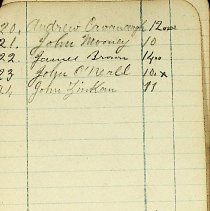 20. Andrew Cavanaugh 12
21. John Mooney 10
22. James Brown 14
23 John O'Neall 10 x
24 John Zinkan 11